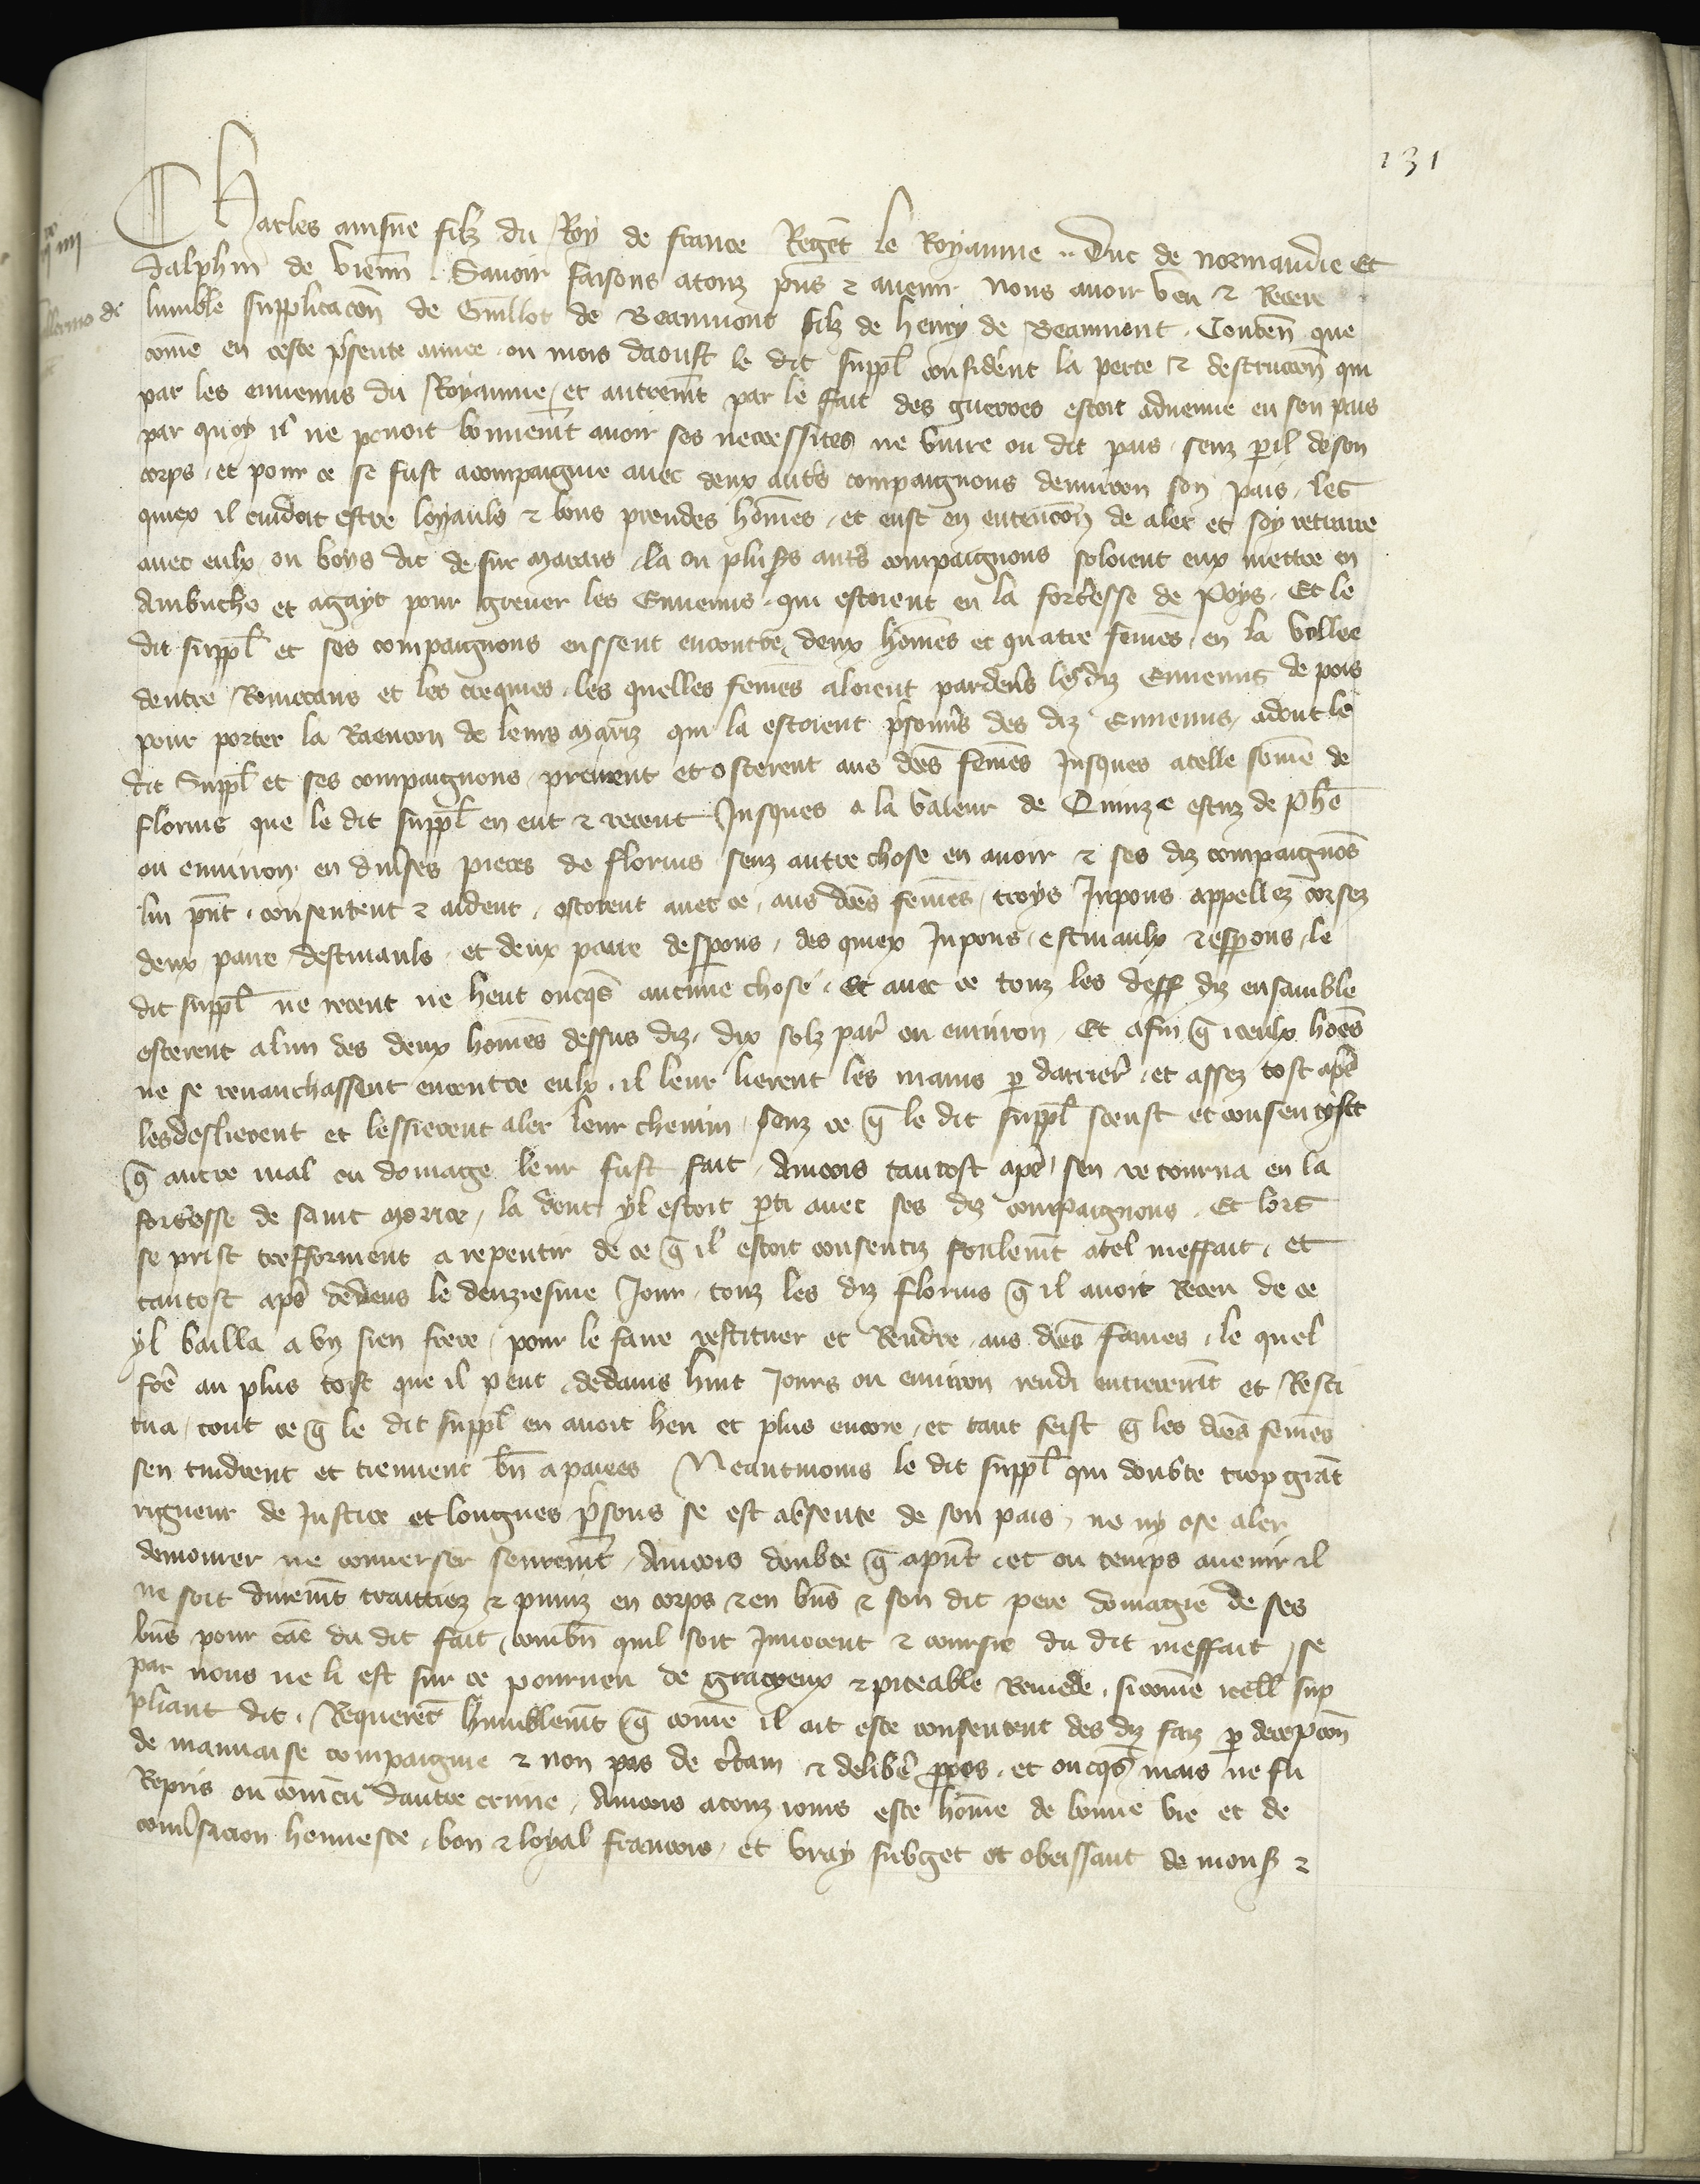 131
Charles ainsne filz du Roy de france Regēt le Royaume .. Duc de normandie Et
dalphin de vienn̄ . Savoir faisons a touz pn̄s ⁊ avenir nous avoir veu ⁊ Receu
lumble supplicacōn de Guillot de Beaumont filz de henry de Beaumont . Contenn̄ que
cōme en ceste p̄sente annee ou mois daoust le dit suppl̄ considerāt la perte ⁊ destruccōn qui
par les ennemis du Royaume et autrem̄t par le fait des guerres estoit advenue en son pais
par quoy il ne povoit bonnem̄t avoir ses necessites ne vivre ou dit pais senz p̄il de son
corps . et pour ce se fust acompaigne avec deux aut̄s compaignons denviron son pais les
quiex il cuidoit estre loyauls ⁊ bons preudes hōmes . et eust en entencōn de aler et soy retraire
avec eulx ou boys dit de sur marais la ou plus̄s aut̄s compaignons soloient eux mettre en
Ambuche et agayt pour grever les Ennemis . qui estoient en la fort̄esse de Poys . Et le
dit suppl̄ et ses compaignons eussent encontre deux hōmes et quatre femēs en la vallee
dentre Romecans et les creques . les quelles femēs aloient pardev̄s les diz Ennemis de pois
pour porter la Raencon de leurs mariz qui la estoient p̄sonn̄s des diz Ennemis / adont le
dit Suppl̄ et ses compaignons prenrent et osterent aus dc̄es femēs Jusques a telle sōme de
florins que le dit suppl̄ en eut ⁊ receut Jusques a la valeur de Quinze escuz de Phē
ou environ en div̄ses pieces de florins senz autre chose en avoir ⁊ ses diz compaignōs
lui p̄nt . consentent ⁊ aident . osterent avec ce . aus dc̄es femēs troys Jupons appellez corsez
deux paire destivauls . et deux paire desp̄ons . des quiex Jupons estivaulx ⁊ esp̄ons . le
dit suppl̄ ne receut ne heut oncq̄s aucune chose . Et avec ce touz les dess̄ diz ensamble
osterent a lun des deux homēs dessus diz . dix solz par̄ ou environ . Et afin q̄ iceulx hoēs
ne se revanchassent encontre eulx . il leur lierent les mains p̄ darrier̄ . et assez tost ap̄s
les deslierent et lessierent aler leur chemin . senz ce q̄ le dit suppl̄ sceust et consentyst
q̄ autre mal ou domage leur fust fait . Aincois tantost ap̄s sen retourna en la
fort̄esse de saint morice / la dont yl estoit p̄ti avec ses diz compaignons . Et lors
se prist tresforment a repentir de ce q̄ il estoit consentiz folem̄t a tel meffait . et
tantost ap̄s dedens le deuziesme Jour . touz les diz florins q̄ il avoit Receu de ce
yl bailla a un sien frere . pour le faire restituer et Rendre aus dc̄es fames . le quel
fr̄e au plus tost que il peut dedans huit Jours ou environ rendi entierem̄t et Resti
tua / tout ce q̄ le dit suppl̄ en avoit heu et plus encore / et tant feist q̄ les dc̄es femēs
sen tindrent et tiennent bn̄ a paiees Neantmoins le dit suppl̄ qui doubte trop grāt
rigueur de Justice et longues p̄sons se est absente de son pais . ne ny ose aler
demourer ne converser seurem̄t . Aincois doubte q̄ a pn̄t . et ou temps avenir il
ne soit durem̄t traittiez ⁊ puniz en corps ⁊ en bn̄s ⁊ son dit pere domagie de ses
bn̄s pour cāe du dit fait / combn̄ quil soit Jnnocent ⁊ cource du dit meffait / se
par nous ne li est sur ce pourveu de gracyeux ⁊ piteable Remede . si cōme icell̄ sup
pliant dit . Requerēt humblem̄t q̄ cōme il ait este consentent des diz faiz p̄ decepcōn
de mauvaise compaignie ⁊ non pas de c̄tain ⁊ delib̄e p̄pos . et oncq̄s mais ne fu
Repris ou cōvicū dautre crime . Aincois a touz iours este hōme de bonne vie et de
conv̄sacion honneste . bon ⁊ loyal francois . et vray subget et obeissant de mons̄ ⁊